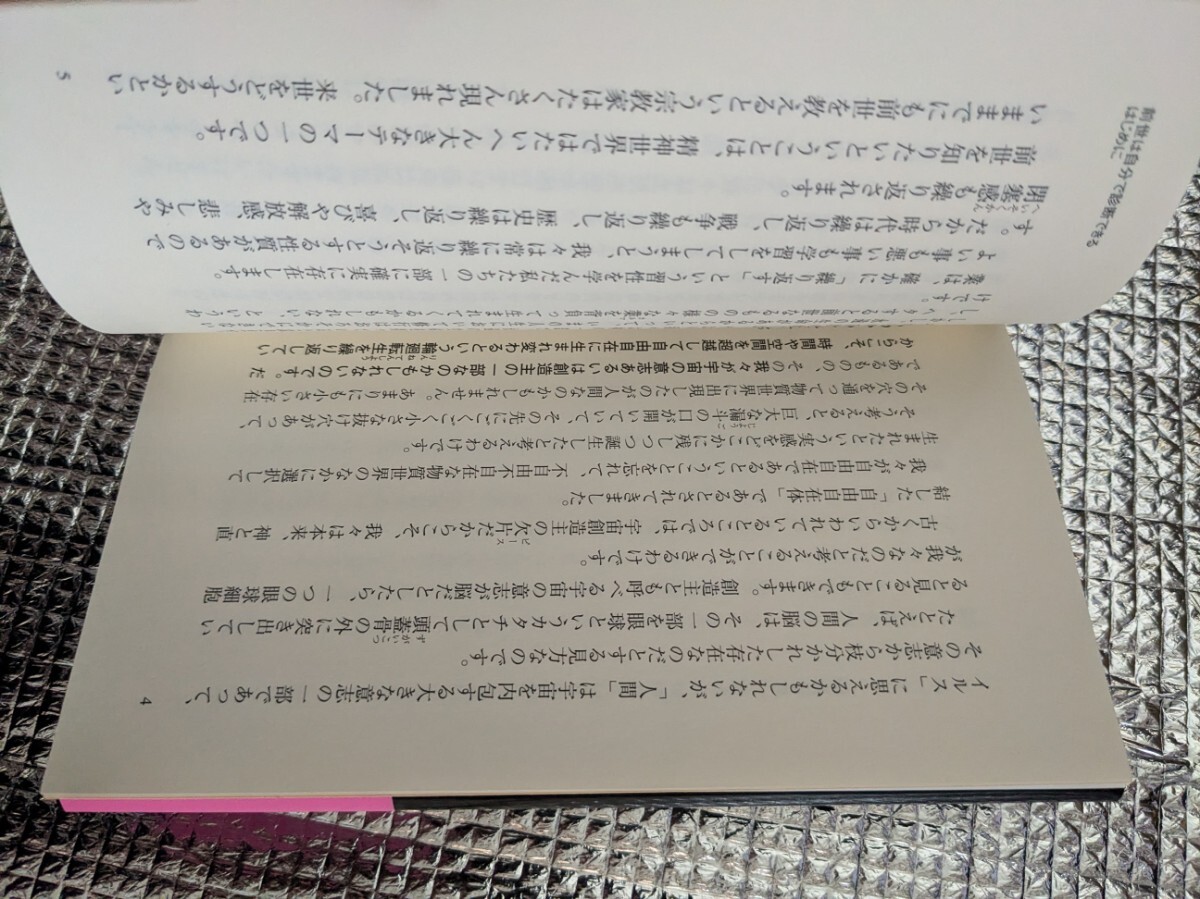 イルス」に思えるかもしれないが、「人間」は宇宙を内包する大きな意志の一部であって、
その意志から枝分かれした存在なのだとする見方なのです。
ずがいこつ
たとえば、人間の脳は、その一部を眼球というカタチとして頭蓋骨の外に突き出してい
ると見ることもできます。創造主とも呼べる宇宙の意志が脳だとしたら、一つの眼球細胞
が我々なのだと考えることができるわけです。
ピース
古くからいわれているところでは、宇宙創造主の欠片だからこそ、我々は本来、神と直
結した「自由自在体」であるとされてきました。
我々が自由自在であるということを忘れて、不自由不自在な物質世界のなかに選択して
生まれたという実感をどこかに残しつつ誕生したと考えるわけです。
じょうご
そう考えると、巨大な漏斗の口が開いていて、その先にごくごく小さな抜け穴があって、
その穴を通って物質世界に現出したのが人間なのかもしれません。あまりにも小さい存在
であるものの、その我々が宇宙の意志あるいは創造主の一部なのかもしれないのです。だ
りんねてんしょう
からこそ、時間や空間を超越して自由自在に生まれ変わるという輪廻転生を繰り返してい
4
様々な業を背負って生まれてくるかもしれない、というわ
けです。
業は、確かに「繰り返す」という習性を学んだ私たちの一部に確実に存在します。
よい事も悪い事も学習をしてしまうと、我々は常に繰り返そうとする性質があるので
す。だから時代は繰り返し、戦争も繰り返し、歴史は繰り返し、喜びや解放感 悲しみや
へいそくかん
閉塞感も繰り返されます。
前世を知りたいということは、精神世界ではたいへん大きなテーマの一つです。
いままでにも前世を教えるという宗教家はたくさん現れました。来世をどうするかとい
はじめに
前世は自分で診断できる
5